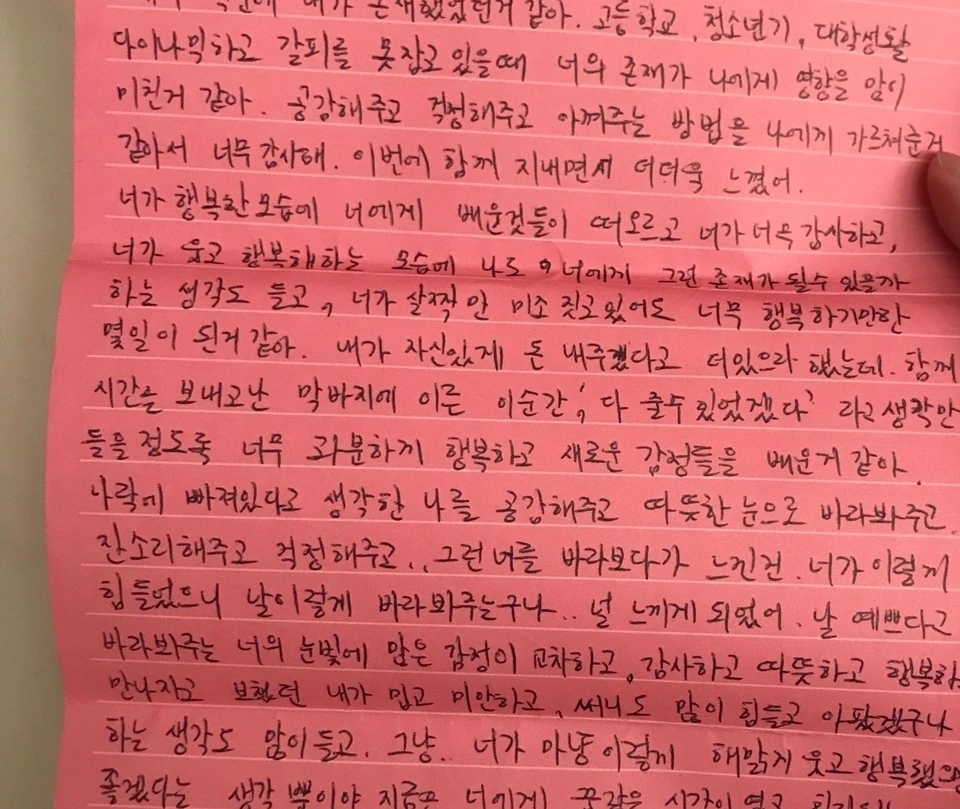 내가 존재했었던거 같아. 고등학교, 청소년기, 대학생활
다이나믹하고 갈피를 못잡고 있을때 너의 존재가 나에게 영향을 많이
미친거 같아. 공감해주고 걱정해주고 아껴주는 방법을 나에게 가르쳐준거
같아서 너무 감사해. 이번에 함께 지내면서 더더욱 느꼈어.
너가 행복한 모습에 너에게 배운것들이 떠오르고 너가 너무 감사하고,
너가 웃고 행복해하는 모습에 나도 너에게 그런 존재가 될수 있을까
하는 생각도 들고, 너가 살짝만 미소 짓고있어도 너무 행복하기만한
몇일이 된거 같아. 내가 자신있게 돈 내주겠다고 더있으라 했는데. 함께
시간을 보내고난 막바지에 이른 이순간, '다 줄수 있었겠다' 라고 생각만
들을정도록 너무 과분하게 행복하고 새로운 감정들을 배운거 같아.
나락에 빠져있다고 생각한 나를 공감해주고 따뜻한 눈으로 바라봐주고
잔소리해주고 걱정해주고.. 그런 너를 바라보다가 느낀건. 너가 이렇게
힘들었으니 날이렇게 바라봐주는구나.. 널 느끼게 되었어. 날 예쁘다고
바라봐주는 너의 눈빛에 많은 감정이 교차하고, 감사하고 따뜻하고 행복하
만나자고 보챘던 내가 밉고 미안하고, 써니도 많이 힘들고 아팠겠구나
하는 생각도 많이들고. 그냥.. 너가 마냥 이렇게 해맑게 웃고 행복했으면
좋겠다는 생각 뿐이야 지금은 너에게 시간이